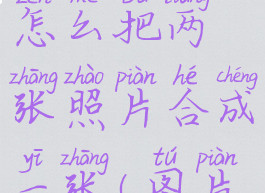 怎么把两
zhāng zhào piàn hé chéng
张照片合成
yī zhāng tú piàn
一张(图片